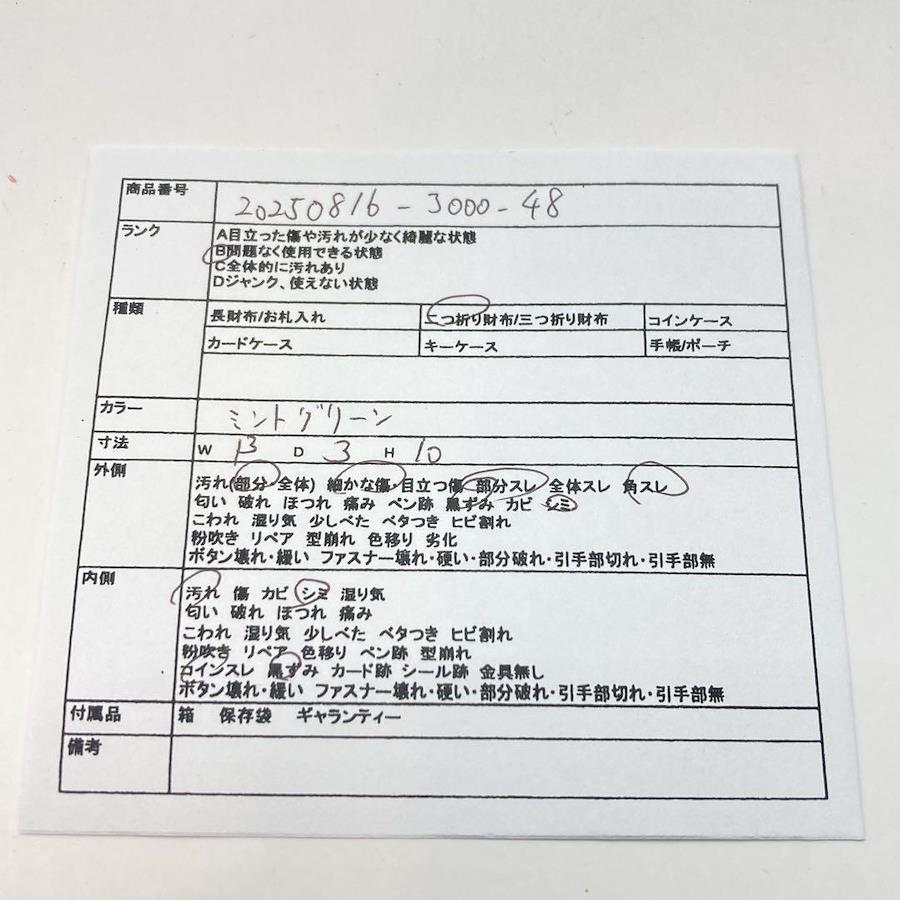 商品番号 20250816-3000-48
ランク A目立った傷や汚れが少なく綺麗な状態
B問題なく使用できる状態
C全体的に汚れあり
Dジャンク、使えない状態
種類 長財布/お札入れ 二つ折り財布/三つ折り財布 コインケース
カードケース キーケース 手帳/ポーチ
カラー ミントグリーン
寸法 W 13 D 3 H 10
外側 汚れ(部分 全体) 細かな傷・目立つ傷 部分スレ 全体スレ 角スレ
匂い 破れ ほつれ 痛み ペン跡 黒ずみ カビ シミ
こわれ 湿り気 少しべた ベタつき ヒビ割れ
粉吹き リペア 型崩れ 色移り 劣化
ボタン壊れ・緩い ファスナー壊れ・硬い・部分破れ・引手部切れ・引手部無
内側 汚れ 傷 カビ シミ 湿り気
匂い 破れ ほつれ 痛み
こわれ 湿り気 少しべた ベタつき ヒビ割れ
粉吹き リペア 色移り ペン跡 型崩れ
コインスレ 黒ずみ カード跡 シール跡 金具無し
ボタン壊れ・緩い ファスナー壊れ・硬い・部分破れ・引手部切れ・引手部無
付属品 箱 保存袋 ギャランティー
備考